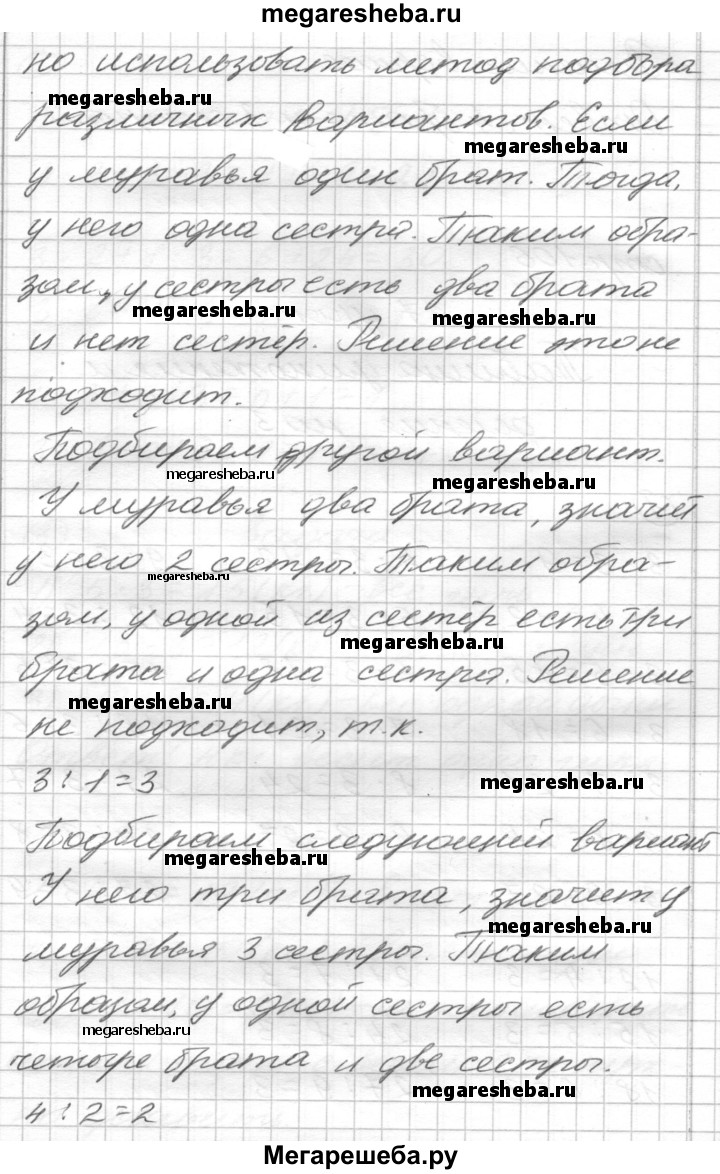 megaresheba.ru
но использовать метод подбора
megaresheba.ru
различных вариантов. Если
megaresheba.ru
у муравья один брат. Тогда,
у него одна сестра. Таким обра-
зом, у сестры есть два брата
megaresheba.ru
megaresheba.ru
и нет сестёр. Решение это не
подходит.
Подбираем другой вариант.
megaresheba.ru
megaresheba.ru
У муравья два брата, значит
у него 2 сестры. Таким обра-
megaresheba.ru
зом, у одной из сестёр есть три
megaresheba.ru
брата и одна сестра. Решение
megaresheba.ru
не подходит, т.к.
3:1=3
megaresheba.ru
Подбираем следующий вариант
megaresheba.ru
У него три брата, значит у
megaresheba.ru
муравья 3 сестры. Таким
образом, у одной сестры есть
megaresheba.ru
четыре брата и две сестры.
megaresheba.ru
4:2=2
Мегарешеба.ру